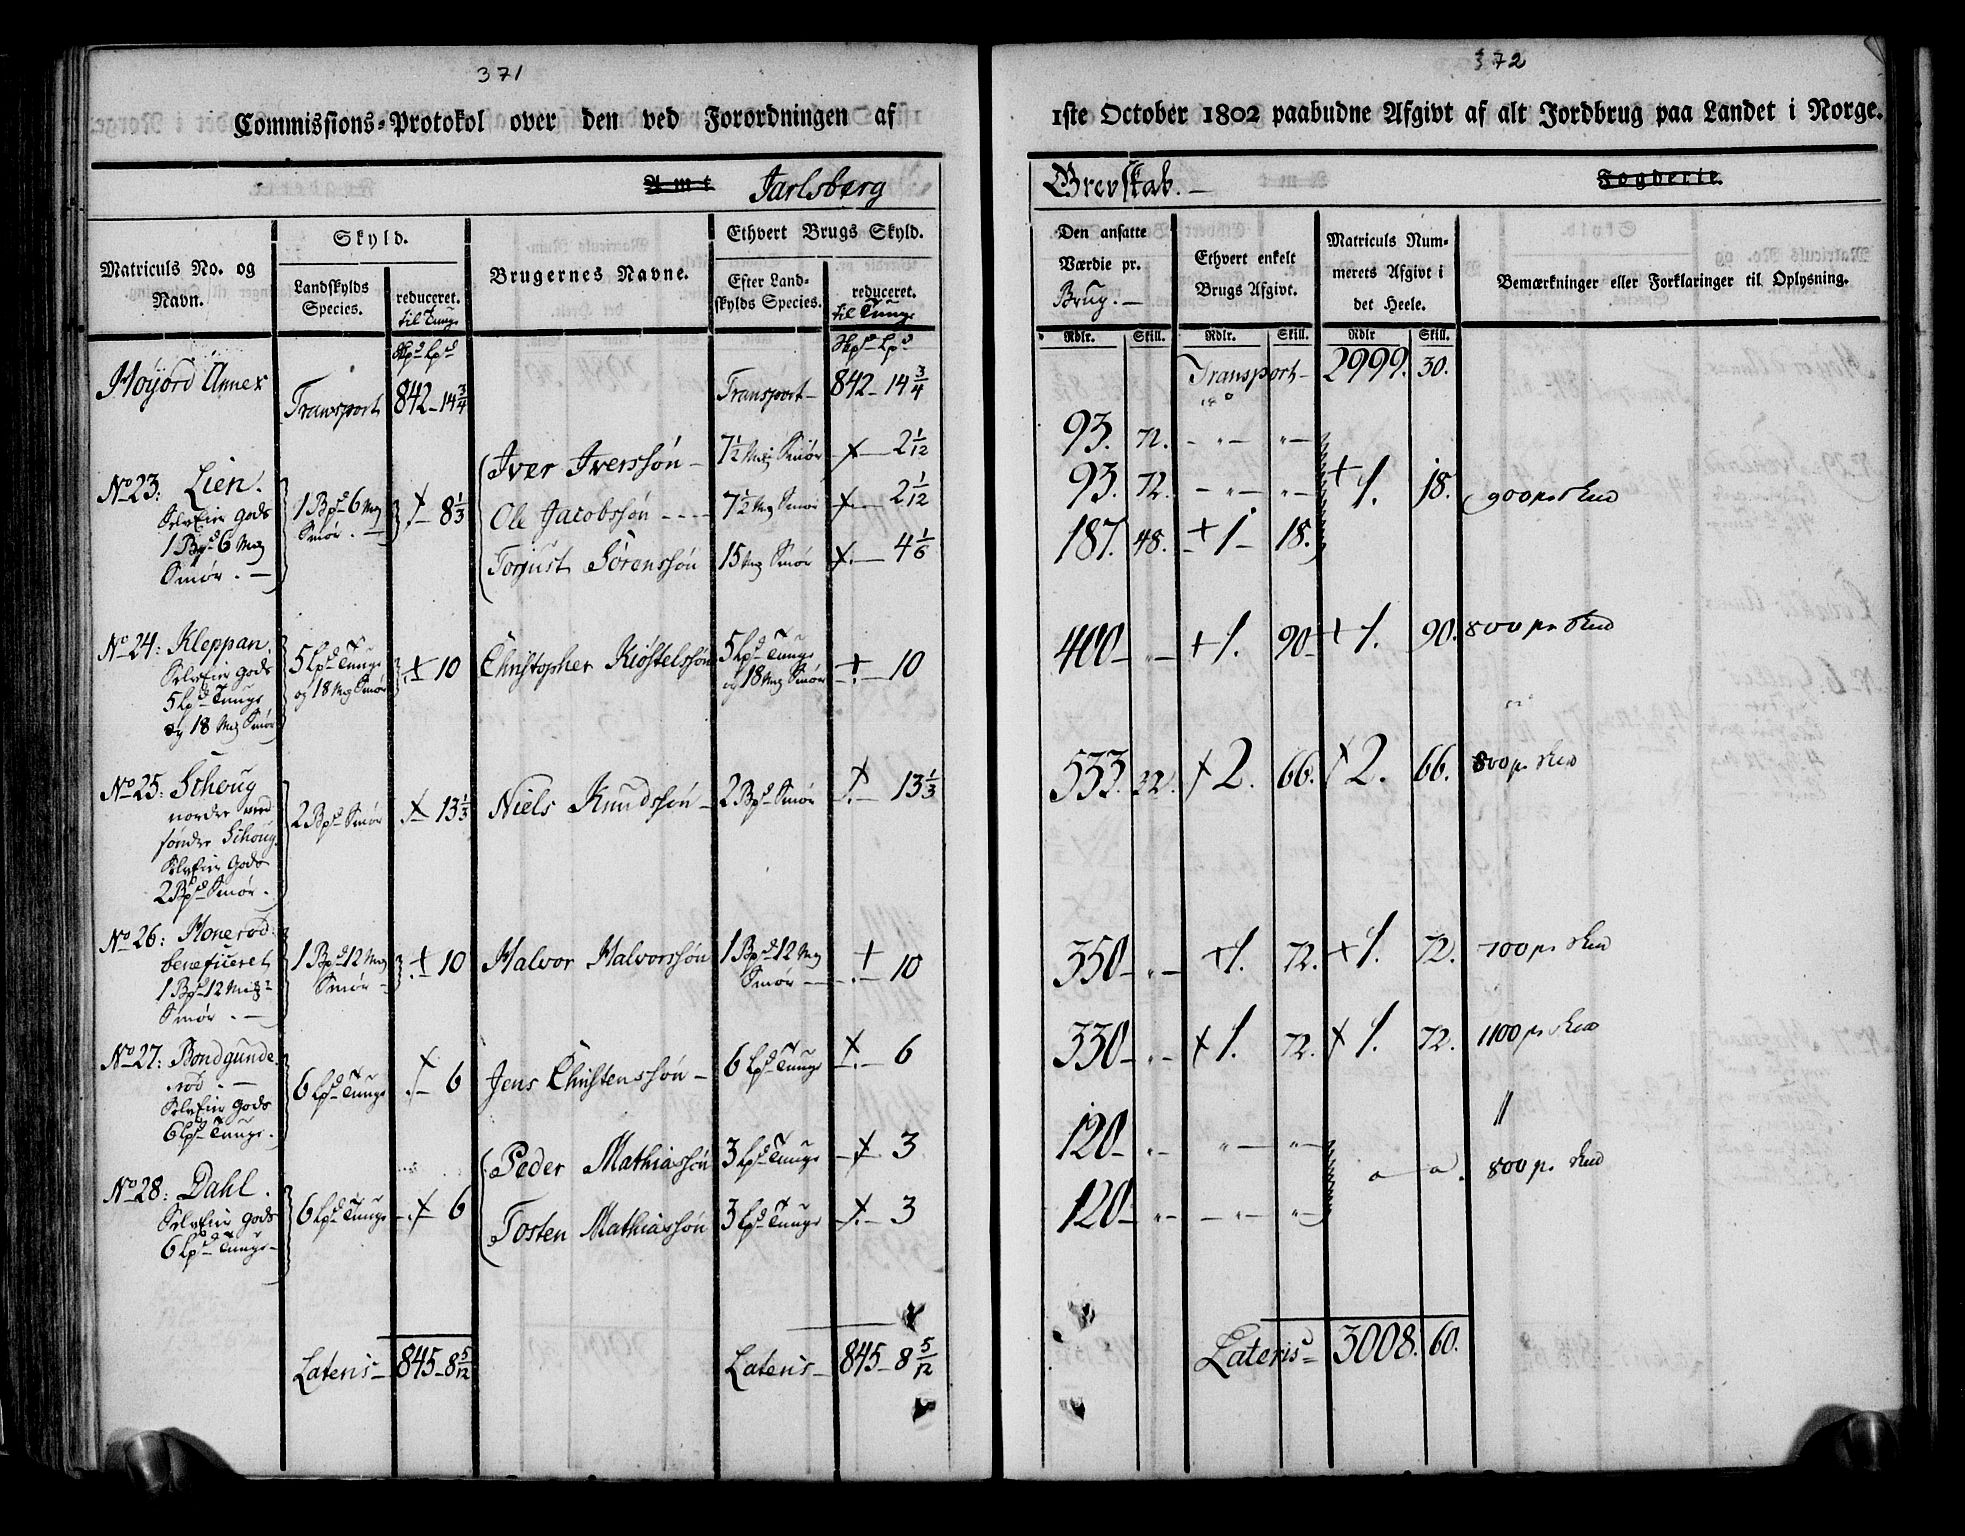 371
372
Commissions-Protokol over den ved Forordningen af
1ste October 1802 paabudne Afgivt af alt Jordbrug paa Landet i Norge.
Amt Jarlsberg
Grevskab. Fogderie.
Matriculs No. og Navn.
Skyld.
Landskylds Species.
reduceret. til Tunge
Brugernes Navne.
Ethvert Brugs Skyld.
Efter Landskylds Species.
reduceret. til Tunge
Den ansatte Værdie pr. Brug.
Ethvert enkelt Brugs Afgivt.
Matriculs Nummerets Afgivt i det Heele.
Bemærkninger eller Forklaringer til Oplysning.
Rdlr. Skill. Rdlr. Skill. Rdlr Skill.
Høyjord Annex Transport 842 - 14 3/4 Transport - 842 - 14 3/4 Transport - 2999. 30.
Iver Iversøn - 7 1/2 Mg Smør 2 1/12 93. 72.
No 23: Lien. 1 Bpd 6 Mg Smør. 8 1/3 Ole Jacobssøn 7 1/2 Mg Smør 2 1/12 93. 72. + 1. 18. 900
Selveier Gods
1 Bpd 6 Mg
Smør.
Torjust Sørenssøn 15 Mg Smør 4 1/6 187. 48. + 1 18.
No 24: Kleppan. 5 Lpd Tunge og 18 Mg Smør + 10 Christopher Kiøstelssøn 5 Lpd Tunge og 18 Mg Smør + 10 400 + 1. 90 + 1. 90. 800
Selveier Gods
5 Lpd Tunge
og 18 Mg Smør
No 25: Schoug 2 Bpd Smør 13 1/3 Niels Knudssøn - 2 Bpd Smør 13 1/3 533. 32. 2. 66. 2. 66. 800
nordre med
søndre Schoug
Selveier Gods
2 Bpd Smør.
No 26: Honerød 1 Bpd 12 Mg Smør + 10 Halvor Halvorssøn 1 Bpd 12 Mg Smør + 10 350 + 1. 72. + 1. 72. 700
beneficeret
1 Bpd 12 Mg
Smør.
No 27: Bondgunde- 6 Lpd Tunge 6 Jens Christenssøn - 6 Lpd Tunge 6 330 1. 72. 1. 72. 1100
rød.
Selveier Gods
6 Lpd Tunge.
Peder Mathiassøn 3 Lpd Tunge 3 120
No 28: Dahl. 6 Lpd Tunge 6 800
Selveier Gods
6 Lpd Tunge
Tosten Mathiassøn 3 Lpd Tunge 3 120
Lateris 845 - 8 5/12 Lateris 845 - 8 5/12 Lateris 3008. 60.